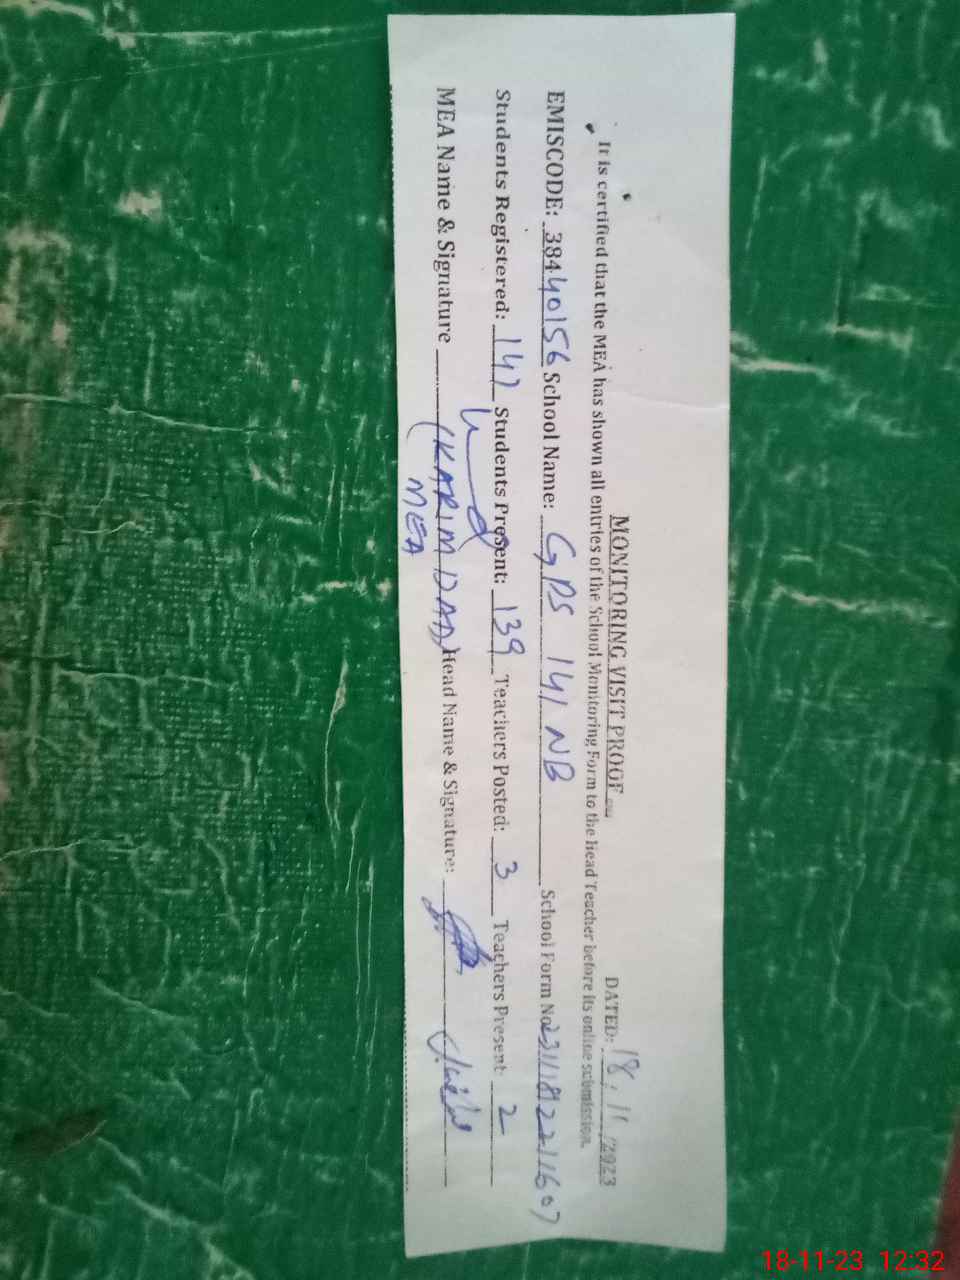 MONITORING VISIT PROOF
DATED: 18, 11 /2023
It is certified that the MEA has shown all entries of the School Monitoring Form to the Head Teacher before its online submission.
EMISCODE: 38440156 School Name: GPS 141 NB School Form No 23111812211607
Students Registered: 147 Students Present: 139 Teachers Posted: 3 Teachers Present: 2
MEA Name & Signature (KARIM DAD) Head Name & Signature:
MEA
18-11-23 12:32